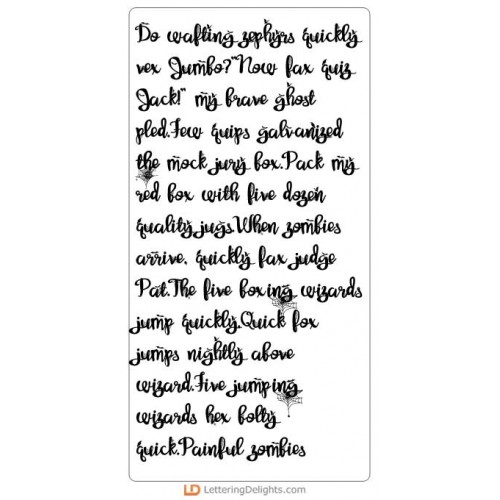 Do wafting zephyrs quickly
vex Jumbo?"Now fax quiz
Jack!" my brave ghost
pled.Few quips galvanized
the mock jury box.Pack my
red box with five dozen
quality jugs.When zombies
arrive, quickly fax judge
Pat.The five boxing wizards
jump quickly.Quick fox
jumps nightly above
wizard.Five jumping
wizards hex bolty
quick.Painful zombies
LD LetteringDelights.com